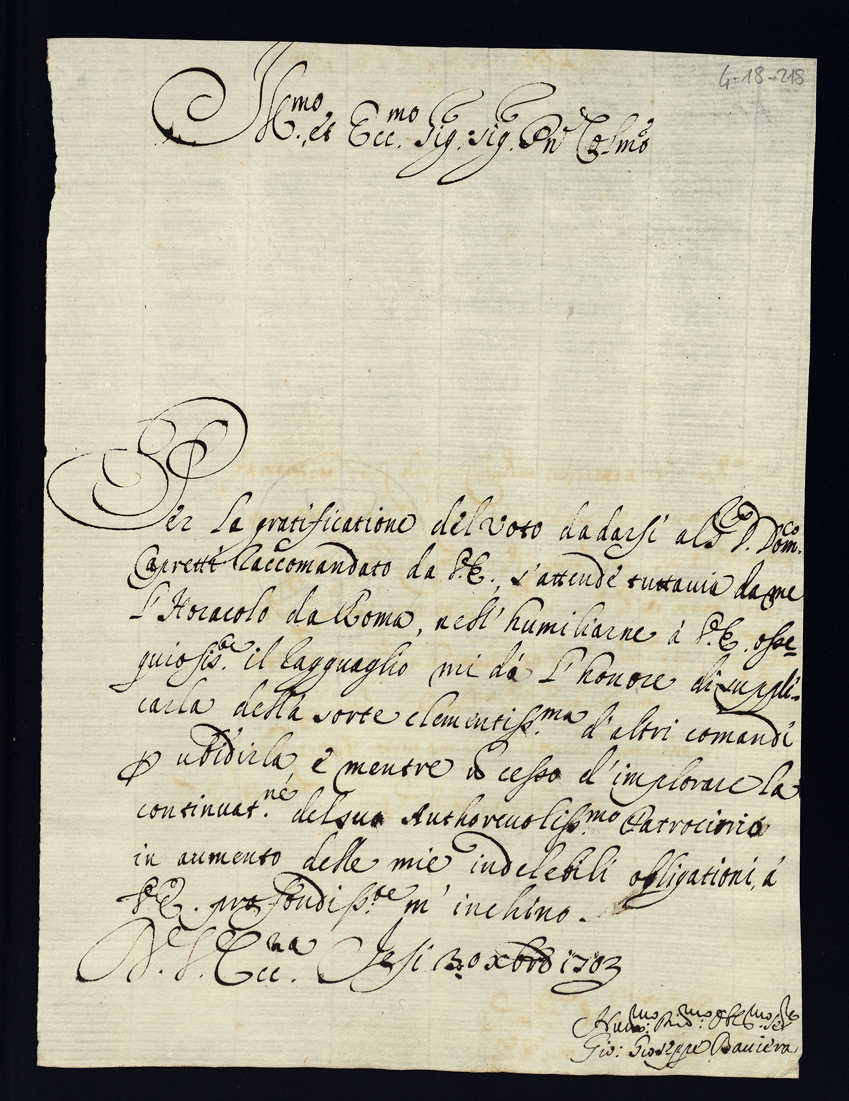 4-18-218
Ill.mo et Ecc.mo Sig.: Sig. Pñ Col.mo
Per la gratificatione del voto da darsi al S. D. Dom.co
Capretti raccomandato da V.E., s'attende tuttavia da me
l'Horacolo da Roma, nell'humiliarne à V.E. osse=
quiosis.te il ragguaglio mi dà l'honore di suppli=
carla della sorte clementiss.ma d'altri comandi
ꝑ ubidirla e mentre cesso d'implorare la
continuat.ne del suo Authorevoliss.mo Patrocinio
in aumento delle mie indelebili obligationi, à
V.E. profondiss.te m'inchino.
D. V. Ecc.za Jesi 30 Xbre 1703
Hum.mo Dev.mo et Obl.mo Ser.e
Gio: Gioseppe Baviera